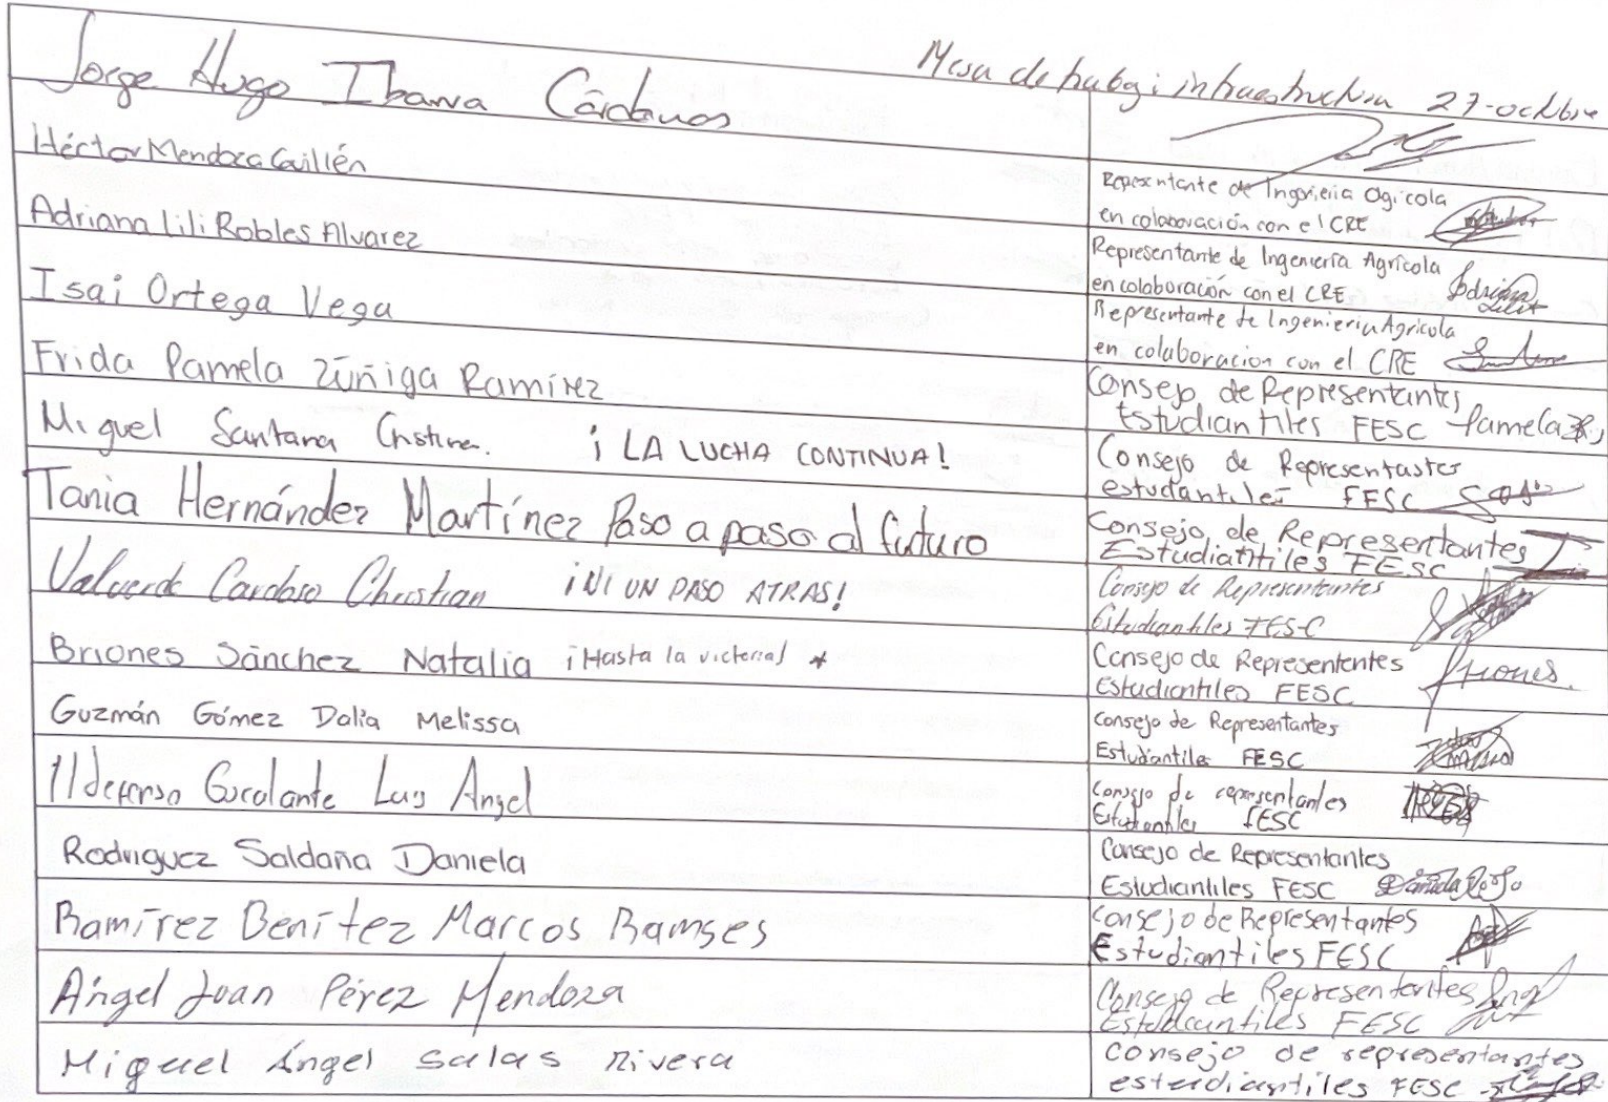 Mesa de trabajo infraestructura 27-octubre
Jorge Hugo Ibarra Cárdenas
Héctor Mendoza Guillén
Representante de Ingeniería Ogrícola
en colaboración con el CRE
Adriana Lili Robles Alvarez
Representante de Ingeniería Agrícola
en colaboración con el CRE
Isai Ortega Vega
Representante de Ingenieria Agrícola
en colaboracion con el CRE
Frida Pamela Zúñiga Ramírez
Consejo de Representantes
Estudiantiles FESC Pamela
Miguel Santana Cristina. ¡LA LUCHA CONTINUA!
Consejo de Representantes
estudiantiles FESC
Tania Hernández Martínez Paso a paso al futuro
Consejo de Representantes
Estudiantiles FESC
Valverde Cardoso Christian ¡NI UN PASO ATRAS!
Consejo de Representantes
Estudiantiles FESC
Briones Sánchez Natalia ¡Hasta la victoria! *
Consejo de Represententes
Estudiantiles FESC
Briones.
Guzmán Gómez Dalia Melissa
Consejo de Representantes
Estudiantiles FESC
Ildefonso Escalante Luis Angel
Consejo de representantes
Estudiantiles FESC
Rodriguez Saldaña Daniela
Consejo de Representantes
Estudiantiles FESC Daniela
Ramírez Benítez Marcos Ramses
Consejo de Representantes
Estudiantiles FESC
Ángel Joan Pérez Mendoza
Consejo de Representantes
Estudiantiles FESC
Miguel Ángel salas rivera
consejo de representantes
estudiantiles FESC